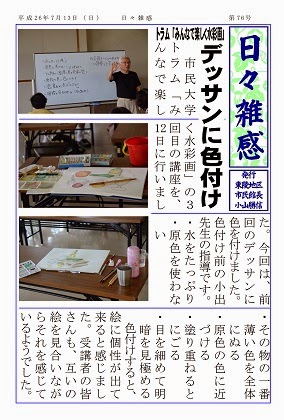 平成26年7月13日（日）　日々雑感　第76号
日々雑感
発行
東陵地区
市民館長
小山勝信
トラム「みんなで楽しく水彩画」
デッサンに色付け
市民大学
トラム「み
んなで楽し
く水彩画」の３
回目の講座を、
12日に行いまし
た。今回は、前
回のデッサンに
色を付けました。
色付け前の小出
先生の指導です。
・水をたっぷり
・原色を使わな
い
・その物の一番
薄い色を全体
にぬる
・原色の色に近
づける
・塗り重ねると
にごる
・目を細めて明
暗を見極める
色付けすると、
絵に個性が出て
来ると感じまし
た。受講者の皆
さんも、互いの
絵を見合いなが
らそれを感じて
いるようでした。